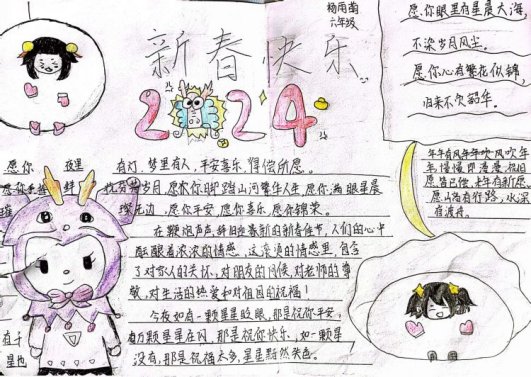 杨雨萌
六年级
新春快乐
2024
愿你眼里有星辰大海
不染岁月风尘。
愿你心有繁花似锦
归来不负韶华。
年年有风年年吹风吹年
年，慢慢即漫漫，祝旧
愿皆已偿，来年有新愿
愿山高有行路，水深
有渡舟。
愿你 夜里有灯，梦里有人，平安喜乐，得偿所愿。
岁月，愿你你脚踏山河繁华人生，愿你满眼星辰
璨无边，愿你平安，愿你喜乐，愿你锦荣。
在鞭炮声声，辞旧迎春新的新春佳节，人们的心中
酝酿着浓浓的情感，这深情的情感里，包含
了对家人的关怀，对朋友的问候，对老师的尊
敬，对生活的热爱和对祖国的祝福！
今夜如有一颗星星眨眼，那是祝你平安，
有万颗星星在闪，那是祝你快乐，如一颗星
没有，那是祝福太多，星星黯然失色。